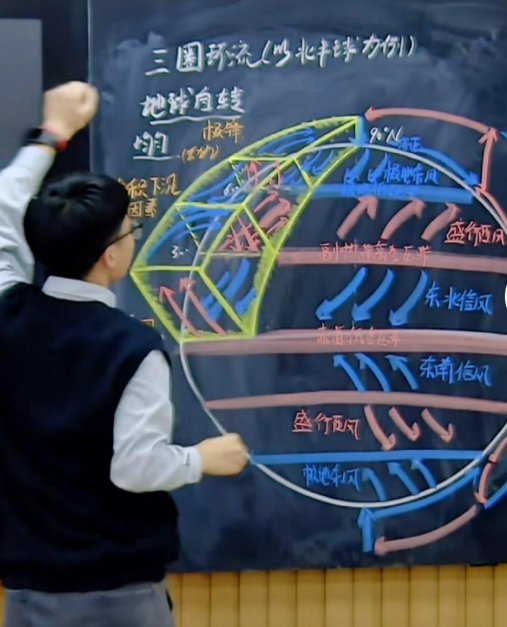 三圈环流(以北半球为例)
地球自转
极锋
90°N
极地东风
盛行西风
副热带高气压带
东北信风
赤道低气压带
东南信风
盛行西风
极地东风
下沉
因素